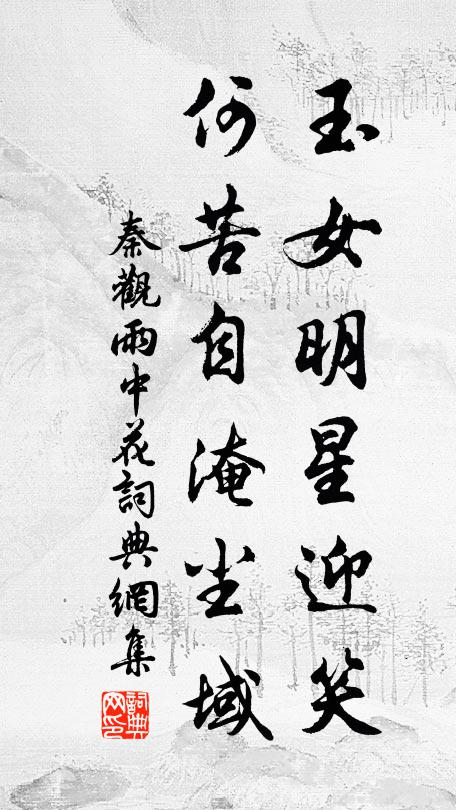 玉女明星迎笑
何苦自淹尘域
秦觀雨中花詞典網集
詞典网印